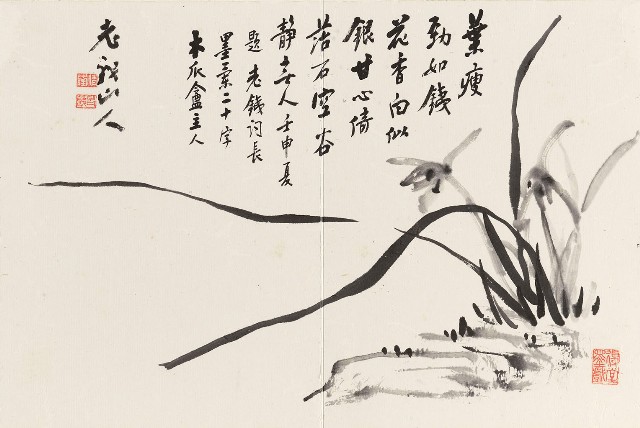 葉瘦
勁如鐵
花香白似
銀甘心倚
苔石空谷
靜無人 壬申夏
題 老鐵詞長
墨蘭二十字
木瓜盦主人
老山人